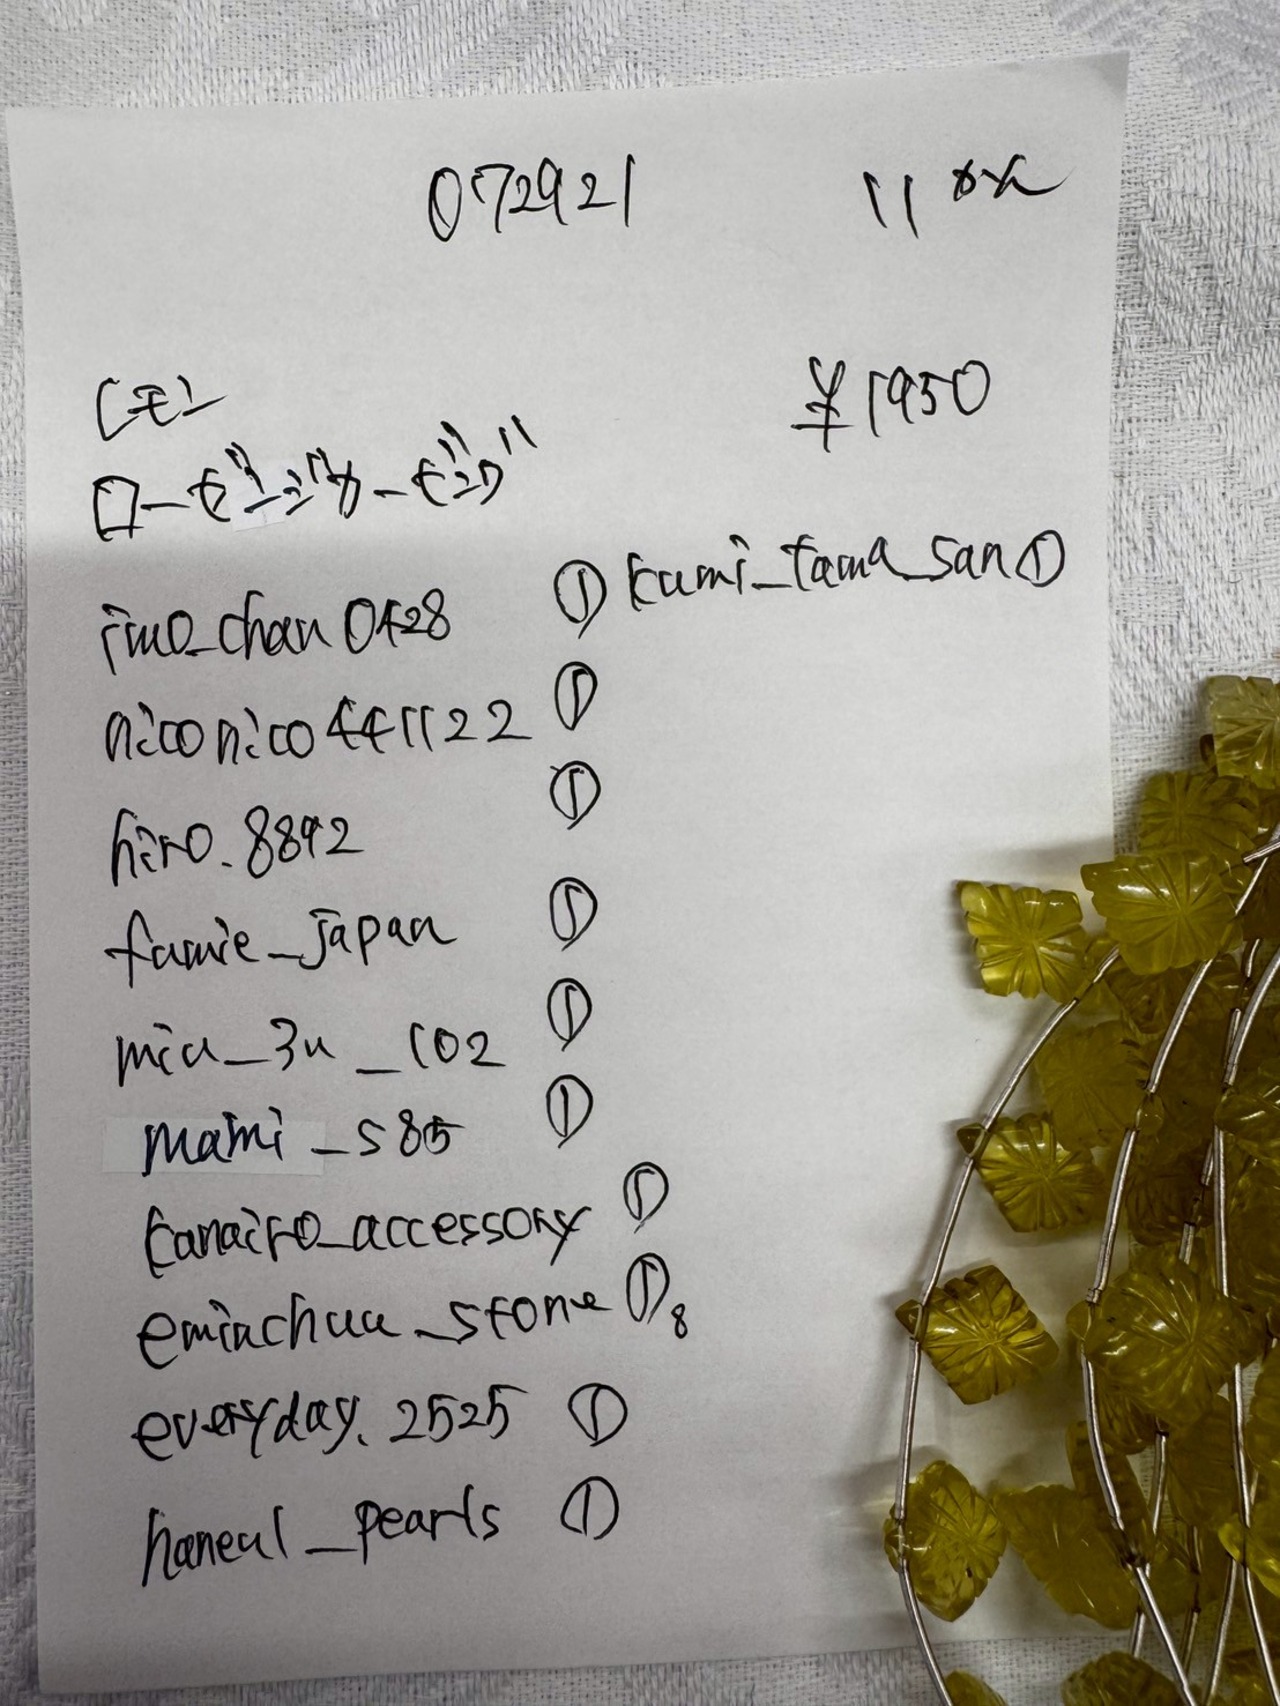 072921
¥1950
imo_chan0428 ① kumi_tama_san ①
niconico441122 ①
hiro.8892 ①
fumie_japan ①
miu_3u_102 ①
mami_s85 ①
kanairo_accessory ①
eminchuu_stone ① 8
everyday.2525 ①
haneul_pearls ①